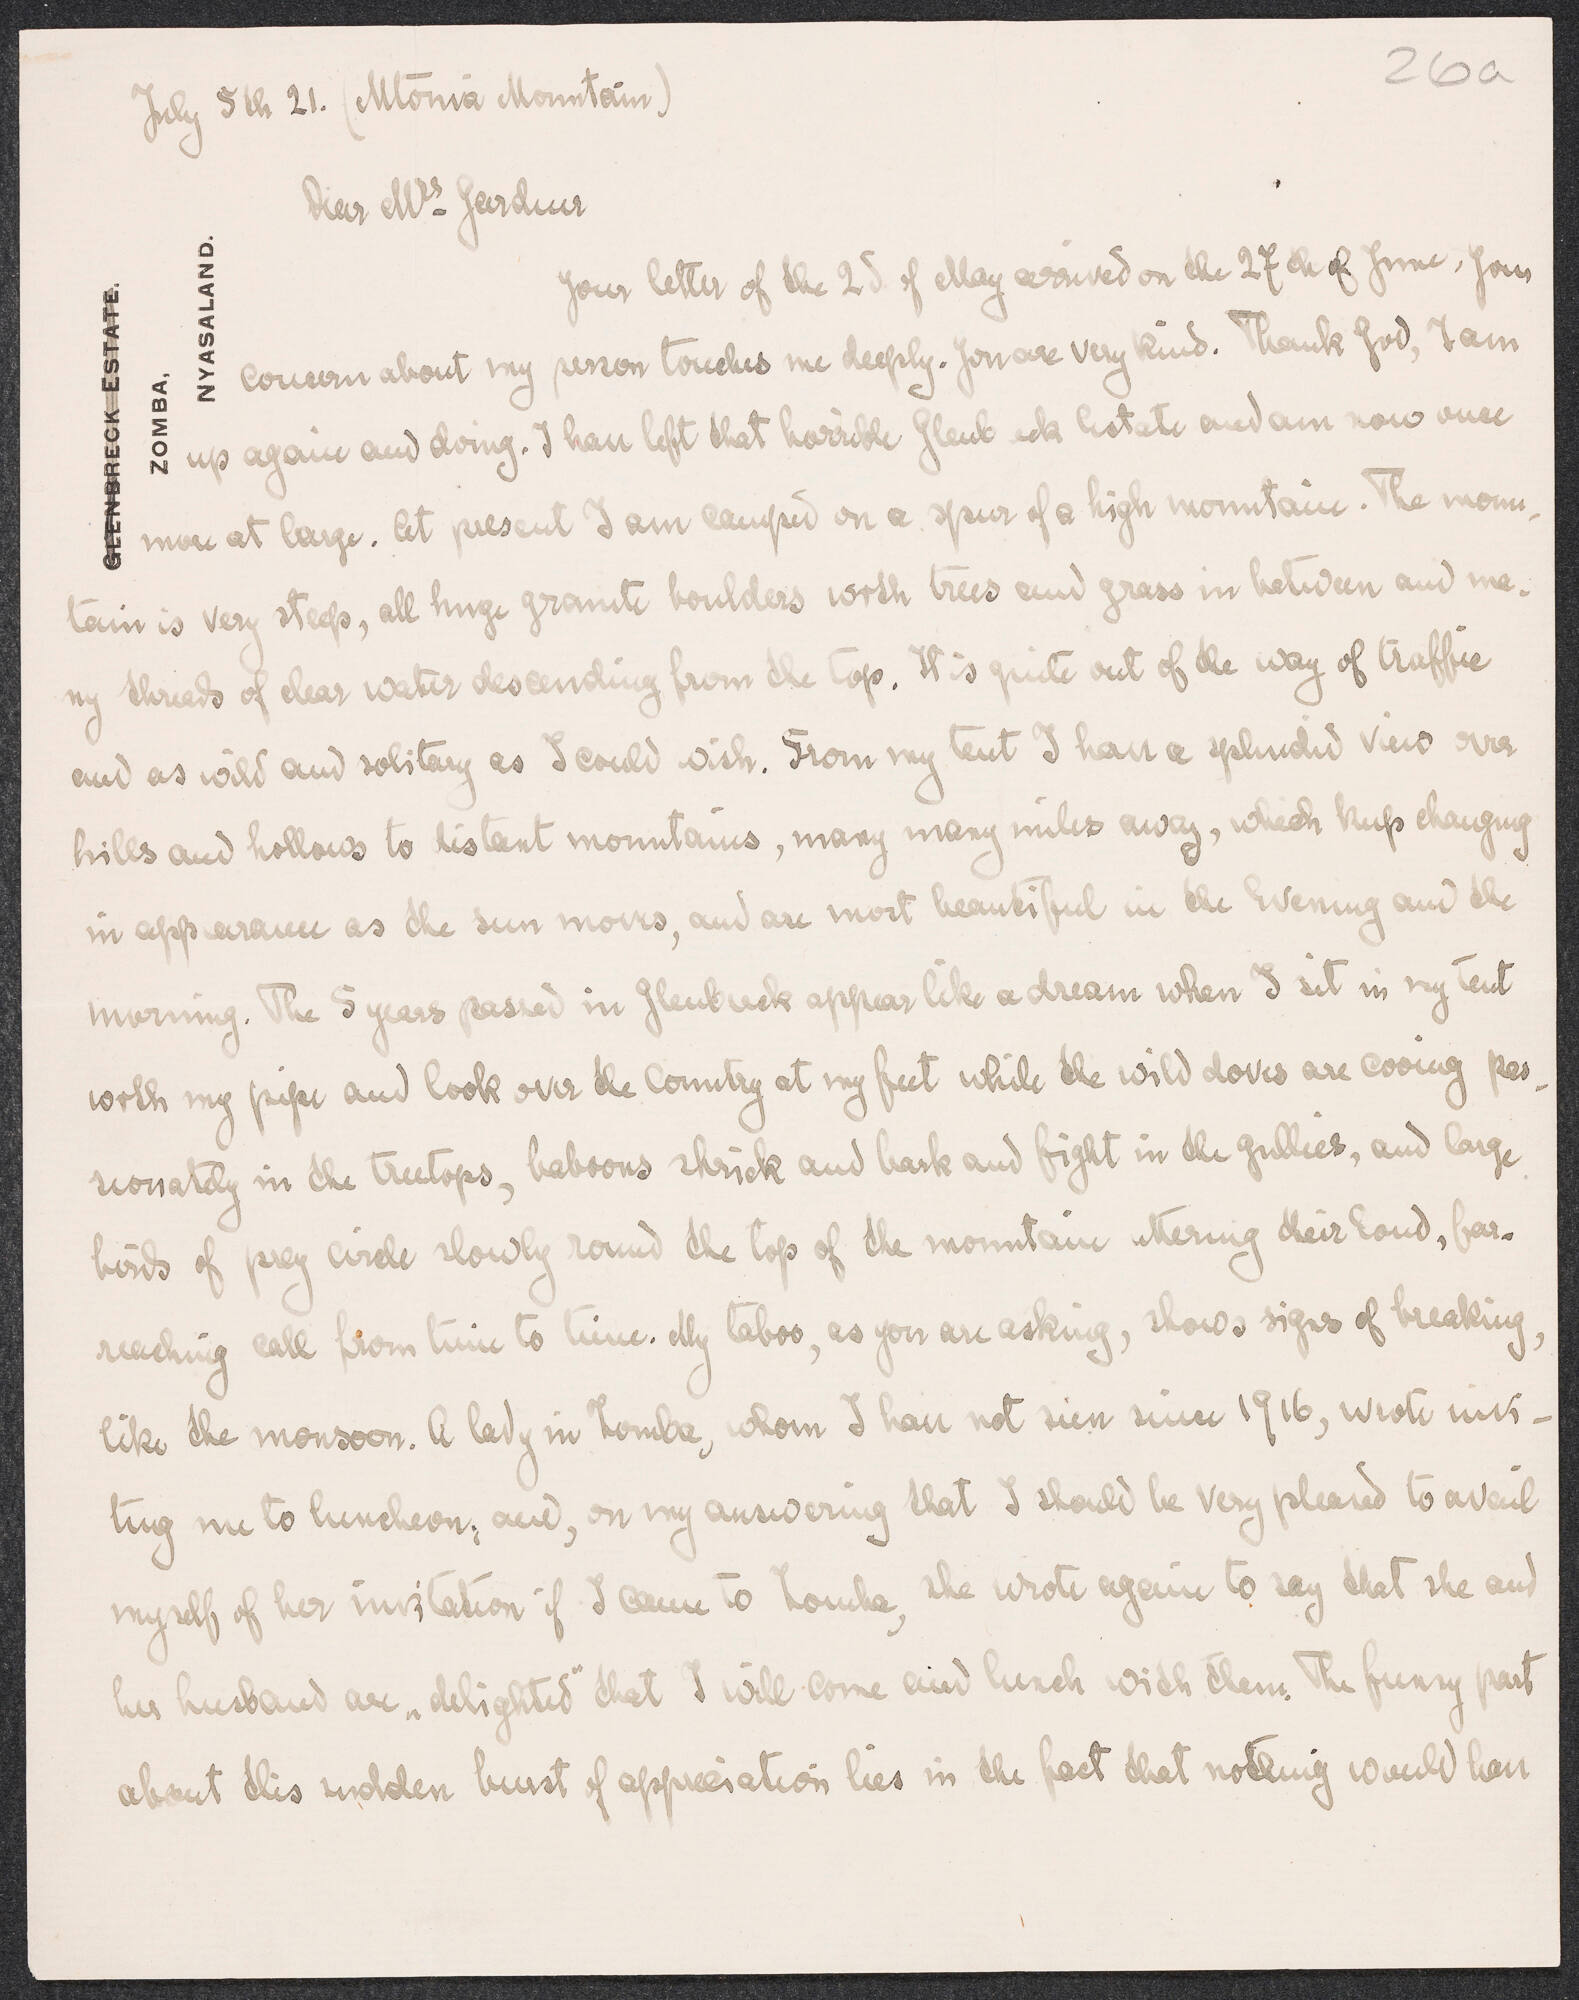 26a
July 5th 21. (Mtónia Mountain)
GLENBRECK ESTATE.
ZOMBA,
NYASALAND.
Dear Mrs Gardner
Your letter of the 2d of May arrived on the 27th of June. Your
concern about my person touches me deeply. You are very kind. Thank God, I am
up again and doing. I have left that horrible Glenbreck Estate and am now once
more at large. At present I am camped on a spur of a high mountain. The moun-
tain is very steep, all huge granite boulders with trees and grass in between and ma-
ny threads of clear water descending from the top. It is quite out of the way of traffic
and as wild and solitary as I could wish. From my tent I have a splendid view over
hills and hollows to distant mountains, many many miles away, which keep changing
in appearance as the sun moves, and are most beautiful in the Evening and the
morning. The 5 years passed in Glenbreck appear like a dream when I sit in my tent
with my pipe and look over the Country at my feet while the wild doves are cooing pas-
sionately in the treetops, baboons shriek and bark and fight in the gullies, and large
birds of prey circle slowly round the top of the mountain uttering their loud, far-
reaching call from time to time. My taboo, as you are asking, shows signs of breaking,
like the monsoon. A lady in Zomba, whom I have not seen since 1916, wrote invi-
ting me to luncheon; and, on my answering that I should be very pleased to avail
myself of her invitation if I came to Zomba, she wrote again to say that she and
her husband are „delighted" that I will come and lunch with them. The funny part
about this sudden burst of appreciation lies in the fact that nothing would have